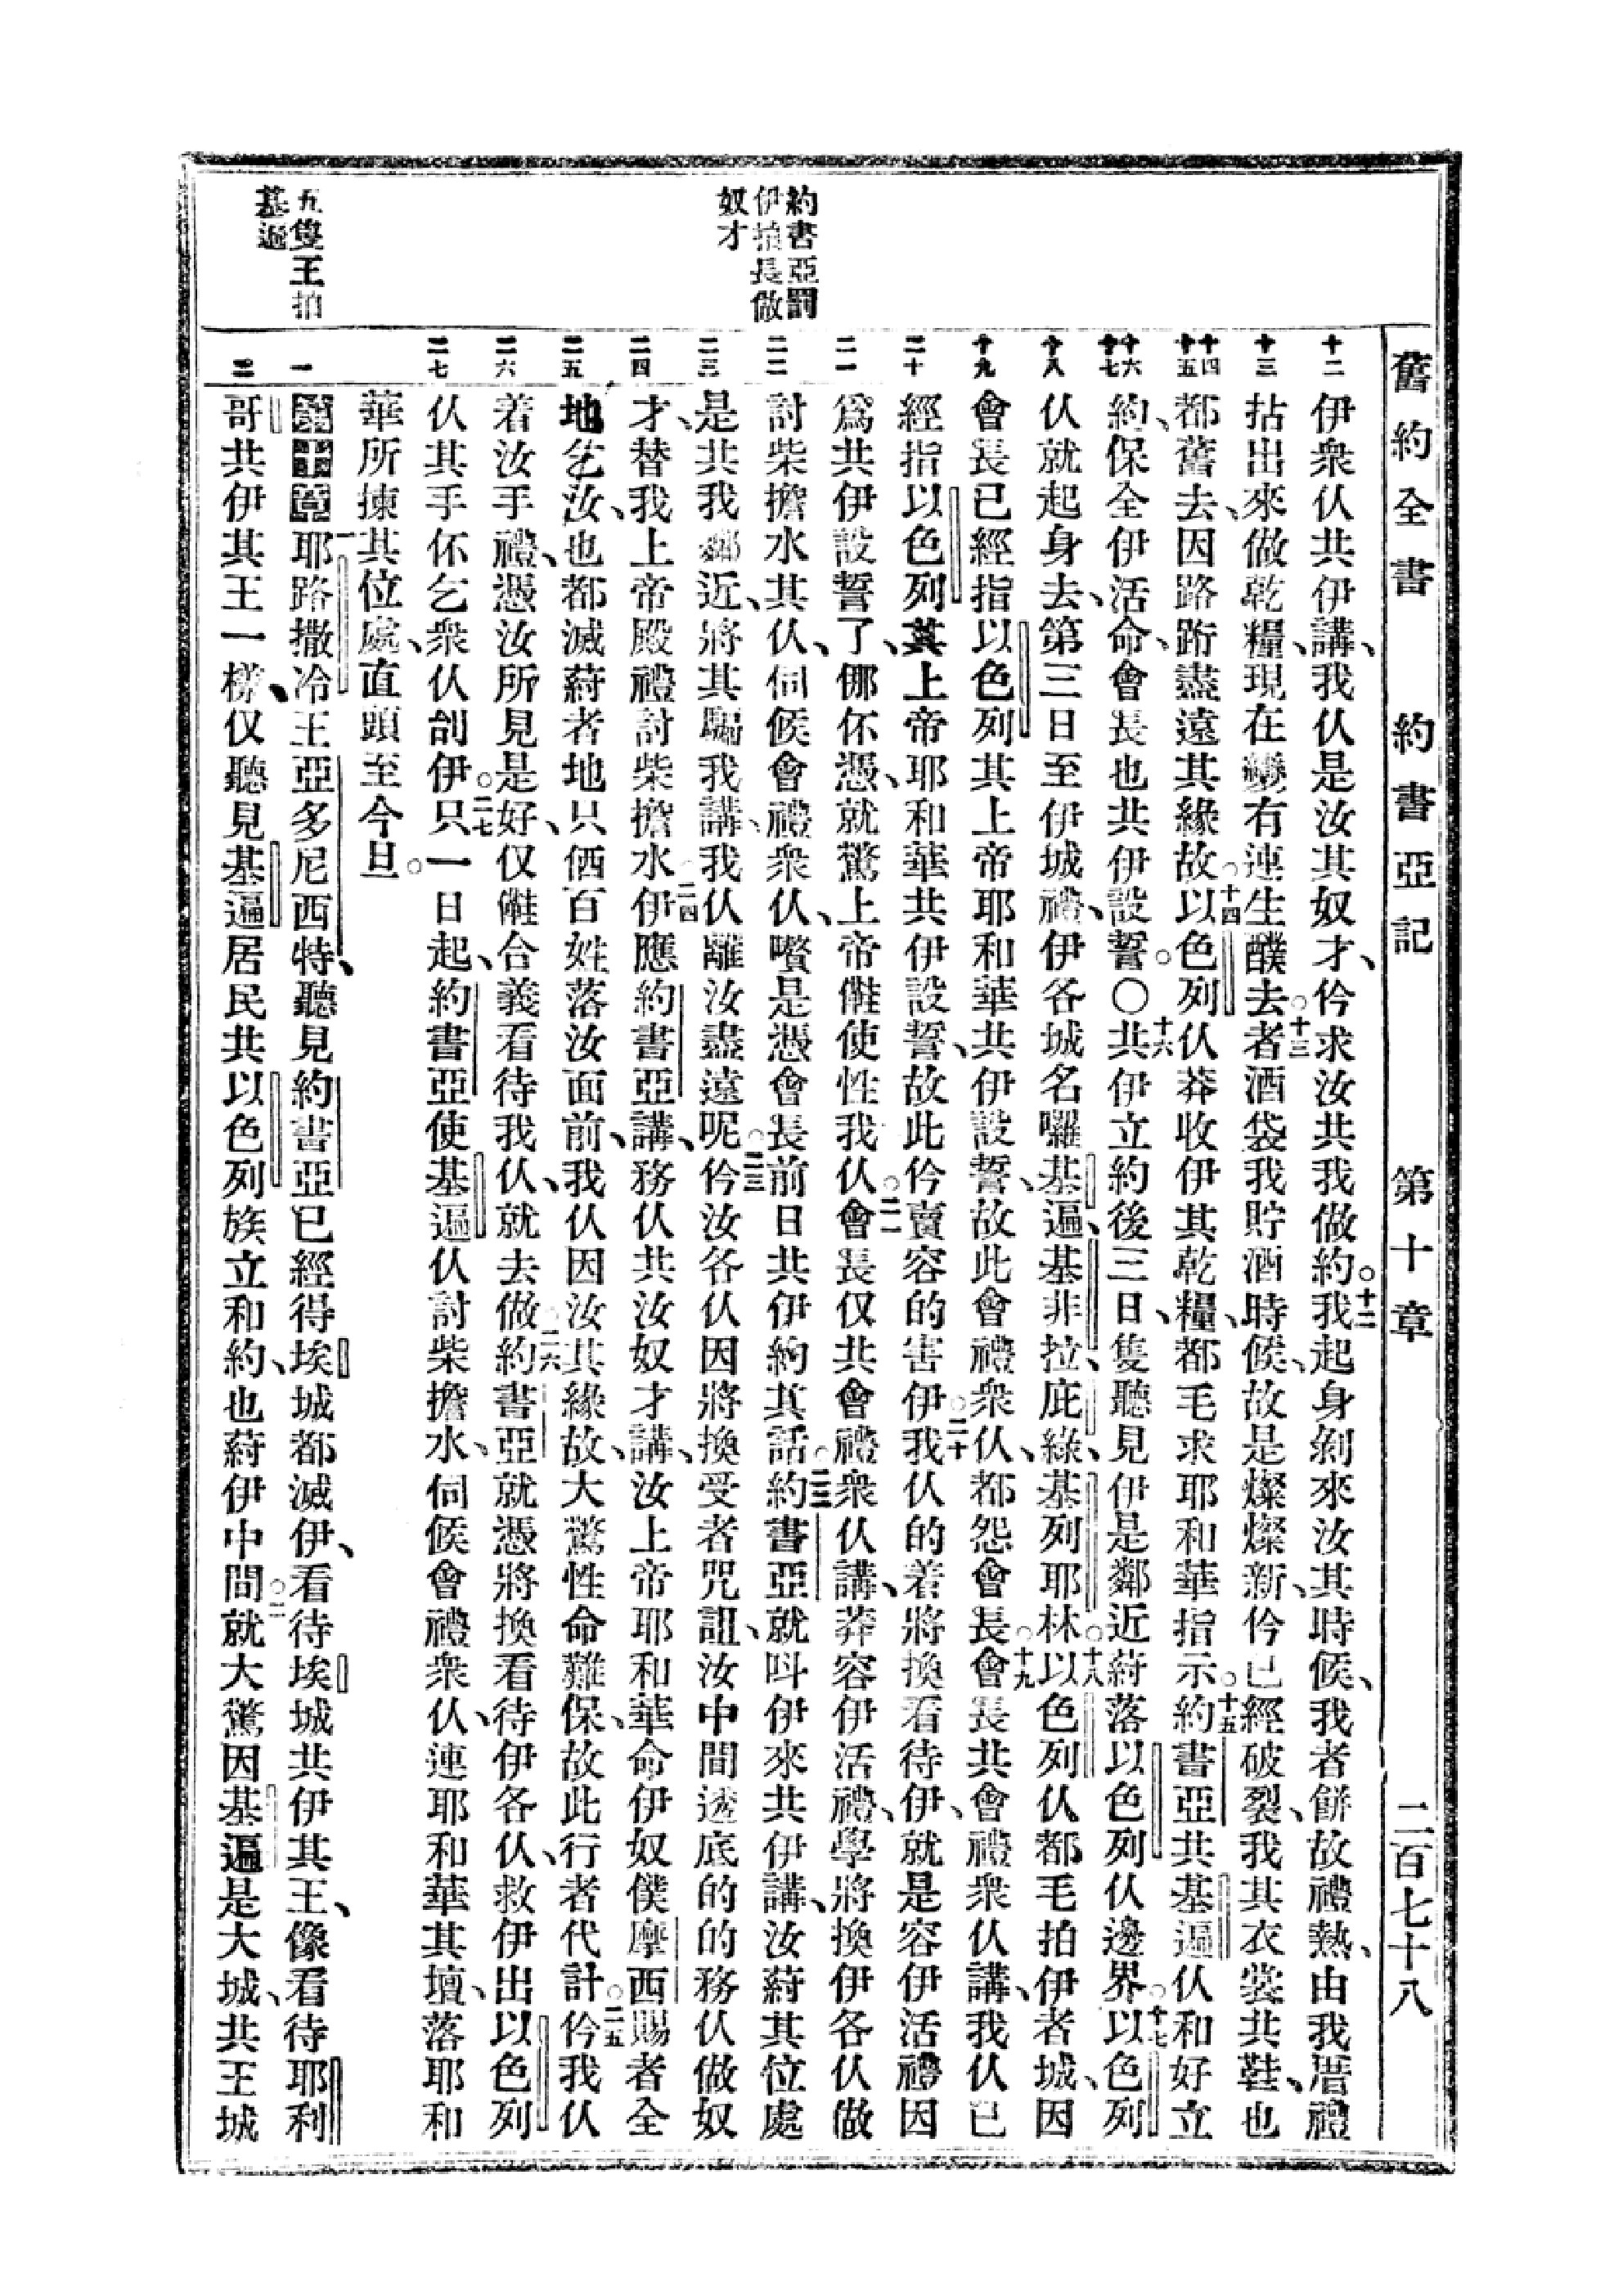 舊約全書　約書亞記　第十章　二百七十八
約書亞罰
伊拍長做
奴才
五隻王拍
基遍
十二
十三
十四
十五
十六
十七
十八
十九
二十
二一
二二
二三
二四
二五
二六
二七
一
二
伊衆仈共伊講、我仈是汝其奴才、仱求汝共我做約。十二我起身剑來汝其時候、我者餅故禮熱、由我厝禮
拈出來做乾糧、現在有連生醭去。十三者酒袋我貯酒時候、故是燦燦新、仱已經破裂、我其衣裳共鞋、也
都舊去、因路跨盡遠其緣故。十四以色列仈莽收伊其乾糧、都毛求耶和華指示。十五約書亞共基遍仈和好立
約、保全伊活命、會長也共伊設誓。〇十六共伊立約後三日、隻聽見伊是鄰近、落以色列仈邊界。十七以色列
仈就起身去、第三日至伊城禮、伊各城名囉基遍、基非拉、庇綠、基列耶林。十八以色列仈都毛拍伊者城、因
會長已經指以色列其上帝耶和華共伊設誓、故此會禮衆仈、都怨會長。十九會長共會禮衆仈講、我仈已
經指以色列其上帝耶和華共伊設誓、故此仱賣容的害伊。二十我仈的着將換看待伊、就是容伊活禮、因
爲共伊設誓了、㑚伓憑、就驚上帝使性我仈。二一會長仅共會禮衆仈講、莽容伊活禮、學將換伊各仈做
討柴擔水其仈、伺候會禮衆仈、是憑會長前日共伊約其話。二二約書亞就呌伊來共伊講、汝其位處
是共我鄰近、將其騙我講、我仈離汝盡遠呢。二三仱汝各仈因將換受者咒詛、汝中間透底的的務仈做奴
才、替我上帝殿禮討柴擔水。二四伊應約書亞講、務仈共汝奴才講、汝上帝耶和華命伊奴僕摩西賜者全
地乞汝、也都滅者地只百姓落汝面前、我仈因汝其緣故、大驚性命難保、故此行者代計。二五仱我仈
着汝手禮、憑汝所見是好、仅合義看待我仈、就去做。二六約書亞就憑將換看待伊各仈、救伊出以色列
仈其手伓乞衆仈刣伊。二七只一日起、約書亞使基遍仈討柴擔水、伺候會禮衆仈、連耶和華其壇、落耶和
華所揀其位處、直頭至今旦。
第十章 一耶路撒冷王亞多尼西特、聽見約書亞已經得埃城都滅伊、看待埃城共伊其王、像看待耶利
哥共伊其王一樣、仅聽見基遍居民共以色列族立和約、也伊中間。二就大驚因基遍是大城、共王城